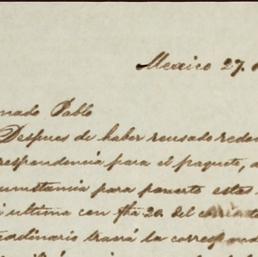 Mexico 27.
mado Pablo
Despues de haber
respondencia para el paquete,
cumstancia para ponerte estas
i ultima con fha 20 del
aordinario traerá la correspond